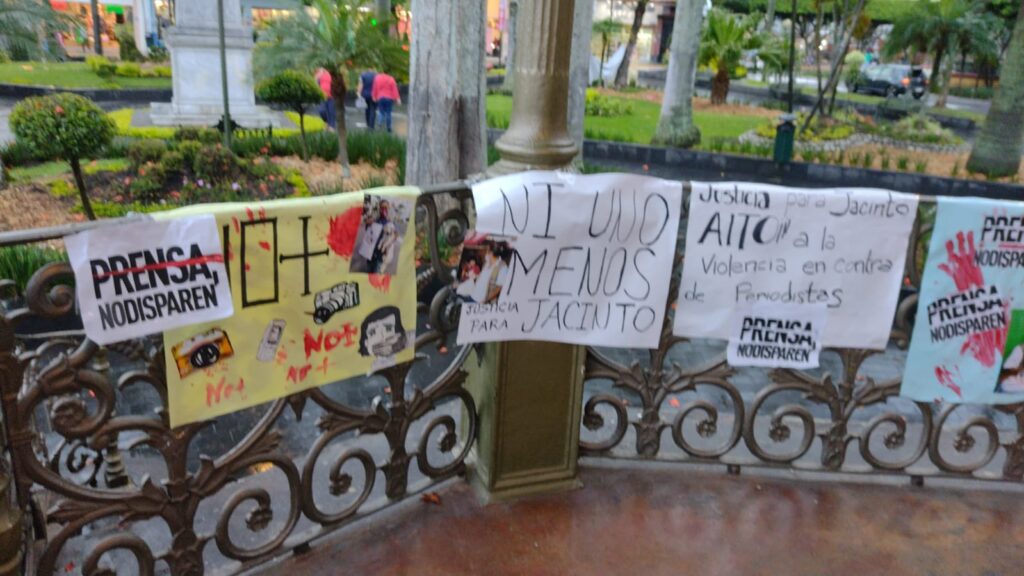 PRENSA,
NODISPAREN
Not
Not
Not
NI UNO
MENOS
JUSTICIA
PARA JACINTO
Justicia para Jacinto
ALTO a la
Violencia en contra
de Periodistas
PRENSA,
NODISPAREN
PRENSA,
NODISPAREN